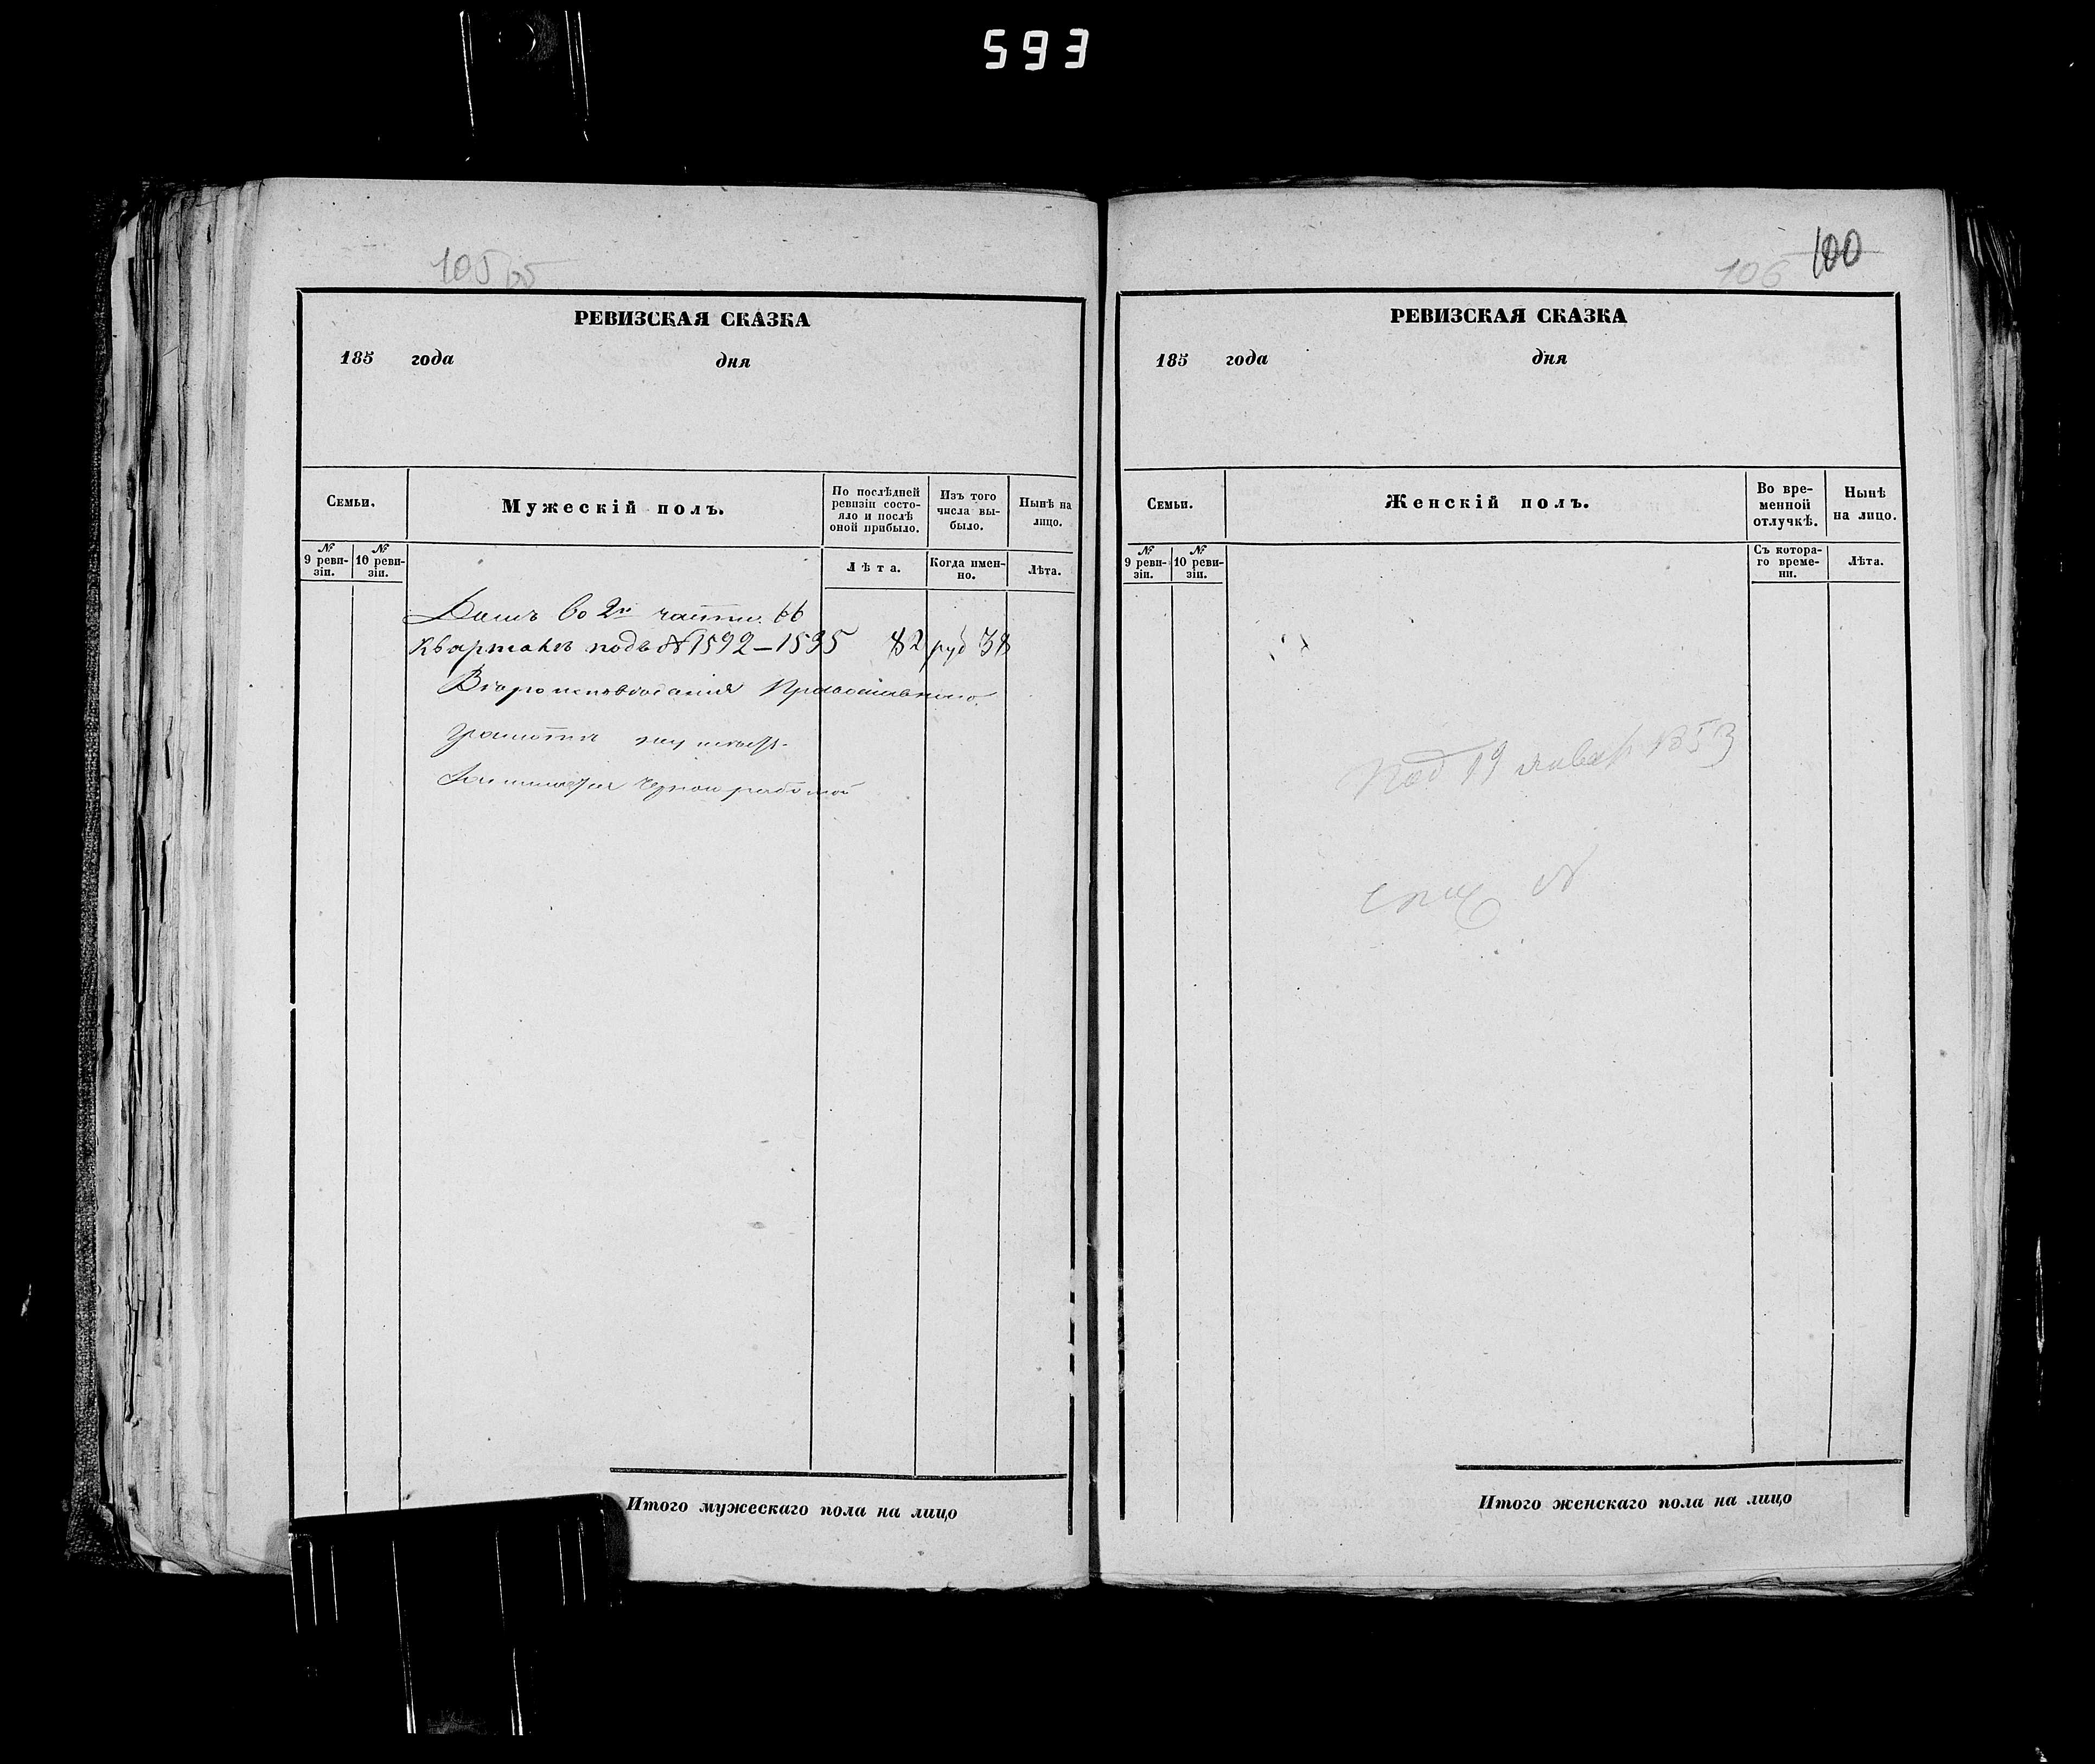 593
105
РЕВИЗСКАЯ СКАЗКА
185 года дня
Семьи.
Мужескій полъ.
По послѣдней ревизіи состояло и послѣ оной прибыло.
Изъ того числа выбыло.
Нынѣ на лицо.
№ 9 ревизіи.
№ 10 ревизіи.
Лѣта.
Когда именно.
Лѣта.
Домъ во 2й части. 66
Кварталѣ подъ № 1592–1595 82 руб 38
Вѣроисповѣданія Православнаго
грамотѣ не умѣетъ.
Занимается черной работой
Итого мужескаго пола на лицо
106 100
РЕВИЗСКАЯ СКАЗКА
185 года дня
Семьи.
Женскій полъ.
Во временной отлучкѣ.
Нынѣ на лицо.
№ 9 ревизіи.
№ 10 ревизіи.
Съ котораго времени.
Лѣта.
Под 19 январ 1853
№
Итого женскаго пола на лицо